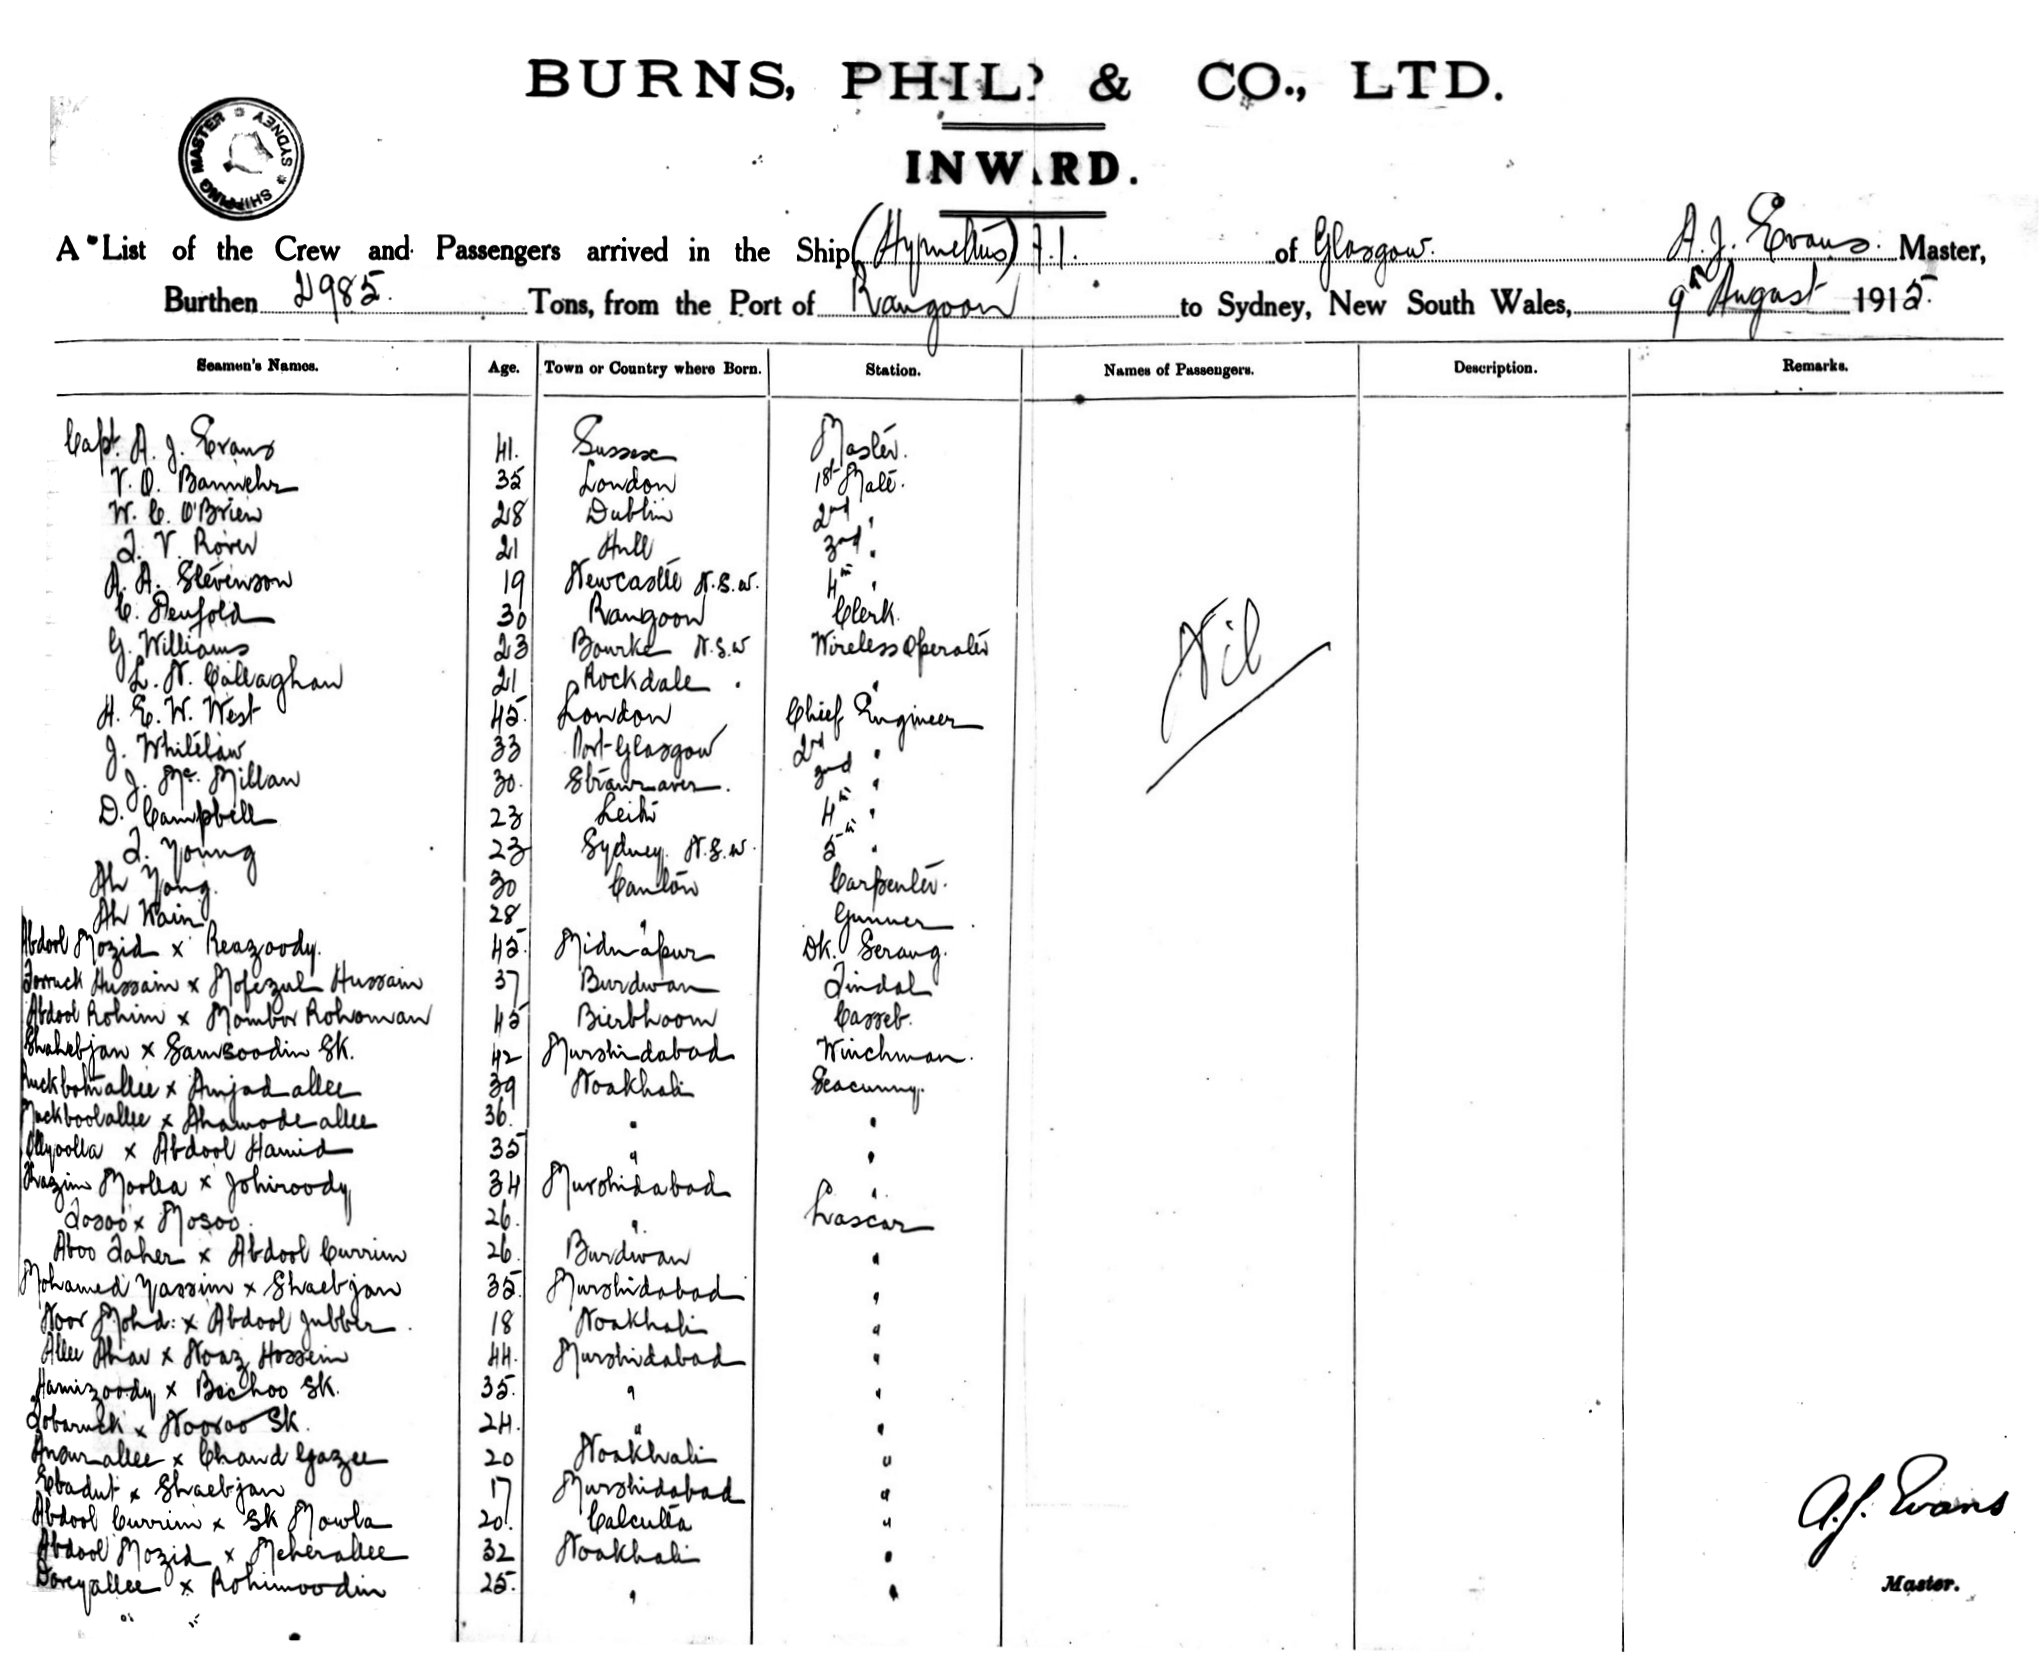 BURNS, PHILP & CO., LTD.
INWARD.
SHIPPING MASTER * SYDNEY *
A List of the Crew and Passengers arrived in the Ship (Hymettus) F.1. of Glasgow. A. J. Evans. Master,
Burthen 2985. Tons, from the Port of Rangoon to Sydney, New South Wales, 9th August 1915.
Seamen's Names. Age. Town or Country where Born. Station. Names of Passengers. Description. Remarks.
Capt. A. J. Evans 41. Sussex Master.
V. O. Bannehr 35 London 1st Mate.
W. C. O'Brien 28 Dublin 2nd "
21 Hull 3rd "
A. A. Stevenson 19 Newcastle N.S.W. 4th "
C. Penfold 30 Rangoon Clerk.
G. Williams 23 Bourke N.S.W Wireless Operator
L. N. Callaghan 21 Rockdale " "
H. E. W. West 45. London Chief Engineer
J. Whitelaw 33 Port-Glasgow 2nd "
J. Mc. Millan 30. Stranraer. 3rd "
D. Campbell 23 Leith 4th "
J. Young 23 Sydney. N.S.W. 5th "
Ah Yong. 30 Canton Carpenter.
Ah Kain 28 " Gunner
Abdool Mozid x Reazoody. 45. Midnapur Dk. Serang.
Forruck Hussain x Mofezul Hussain 37 Burdwan Tindal
Abdool Rohim x Mombor Rohoman 45 Bierbhoom Casseb.
Shahebjan x Samsoodin Sk. 42 Murshidabad Winchman.
Ruckbomallee x Amjadallee 39 Noakhali Seacunny.
Muckboolallee x Ahamodeallee 36. " "
Ollyoolla x Abdool Hamid 35 " "
Kazim Moolla x Johiroody 34 Murshidabad "
Fosoo x Mosoo. 26. " Lascar
Aboo Taher x Abdool Currim 26. Burdwan "
Mohamed Yassim x Shaebjan 35. Murshidabad "
Noor Mohd: x Abdool Jubber. 18 Noakhali "
Allee Ahar x Noaz Hossein 44. Murshidabad "
Hamizoody x Bechoo Sk. 35. " "
Tobaruck x Nooroo Sk. 24. " "
Ansurallee x Chand Gazee 20 Noakhali "
Ebadut x Shaebjan 17 Murshidabad "
Abdool Currim x Sk Mowla 20. Calcutta "
Abdool Mozid x Meherallee 32 Noakhali "
Doreyallee x Rohimoodin 25. " "
Nil
A. J. Evans
Master.